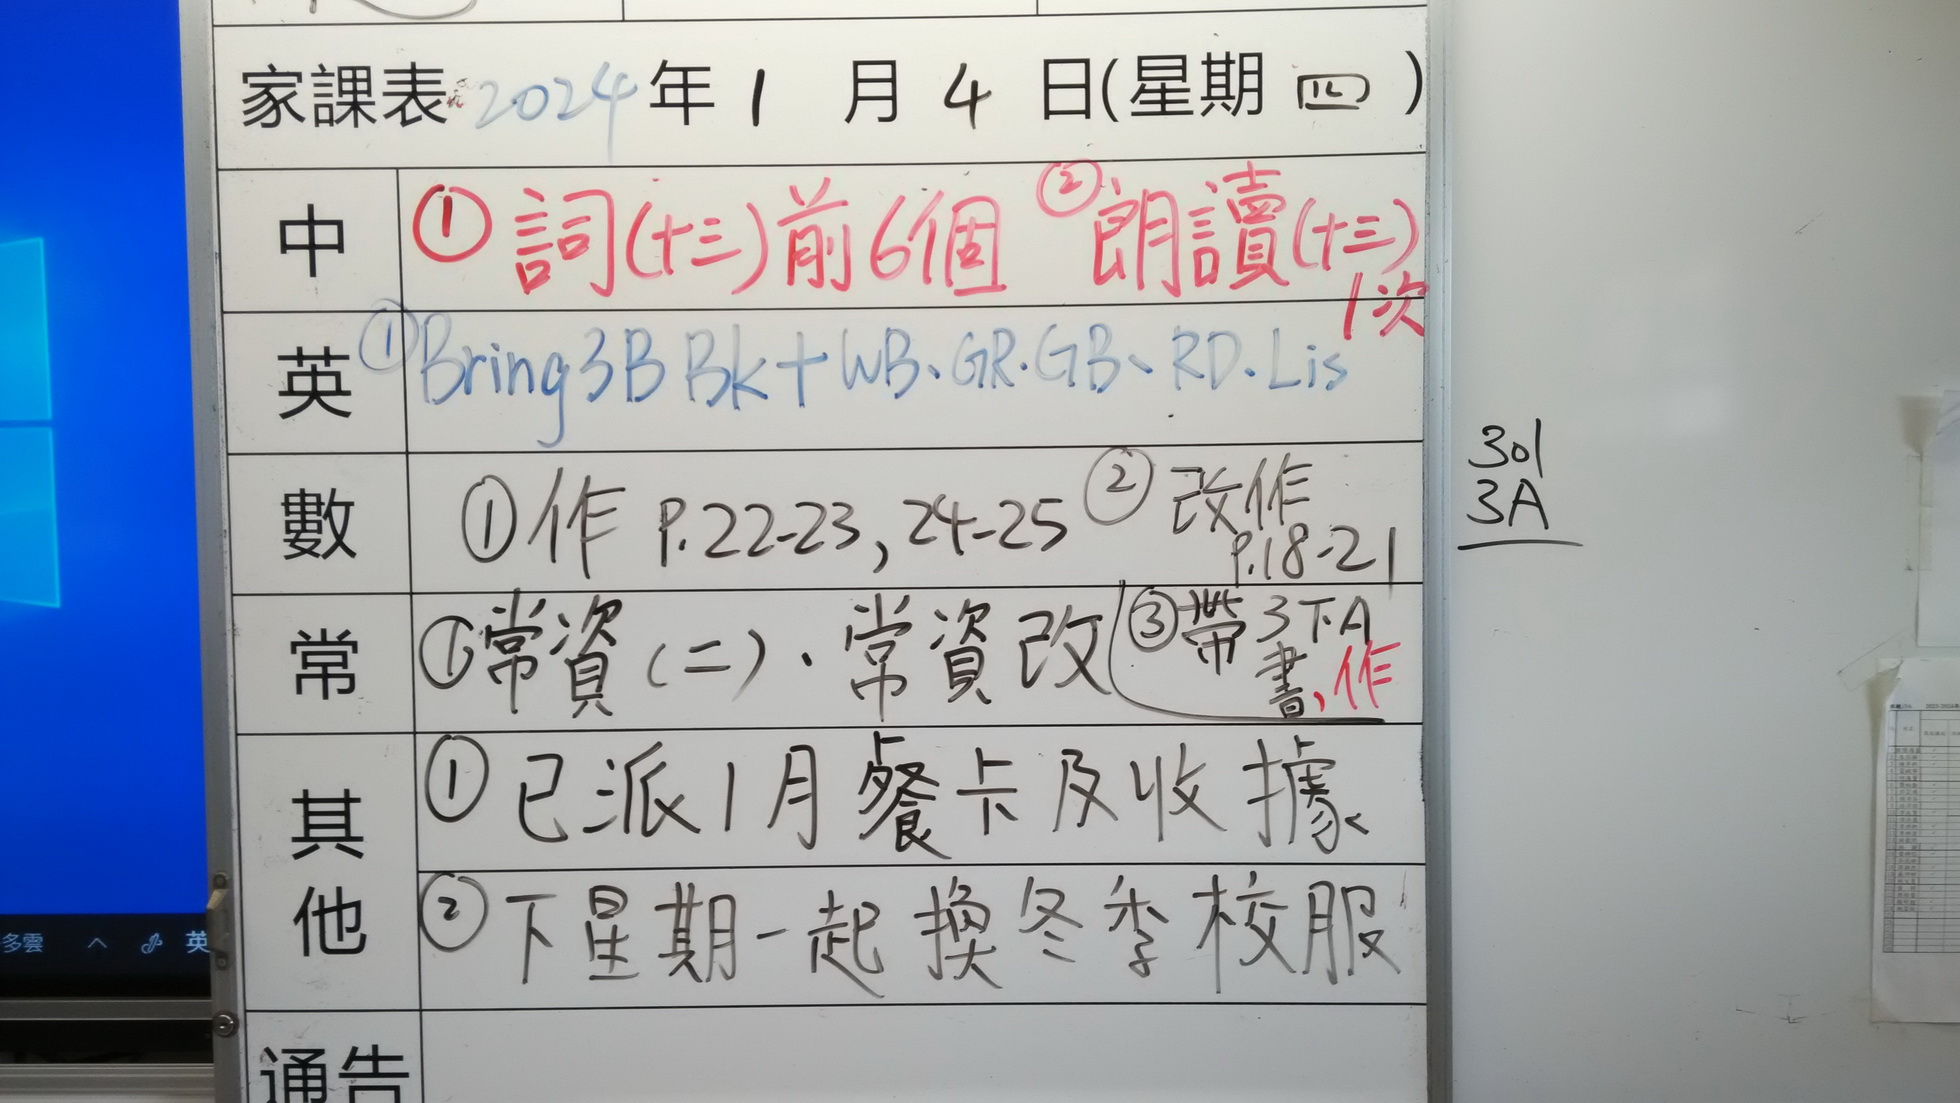 家課表 2024年1月4日(星期四)
中 ①詞(十三)前6個 ②朗讀(十三)
1次
英 ①Bring 3B Bk+WB、GR.GB、RD.Lis
數 ①作 P.22-23, 24-25 ②改作
P.18-21
常 ①常資(二)、常資改 ③帶3下A
書,作
其他 ①已派1月餐卡及收據
②下星期一起換冬季校服
通告
301
3A
多雲 英